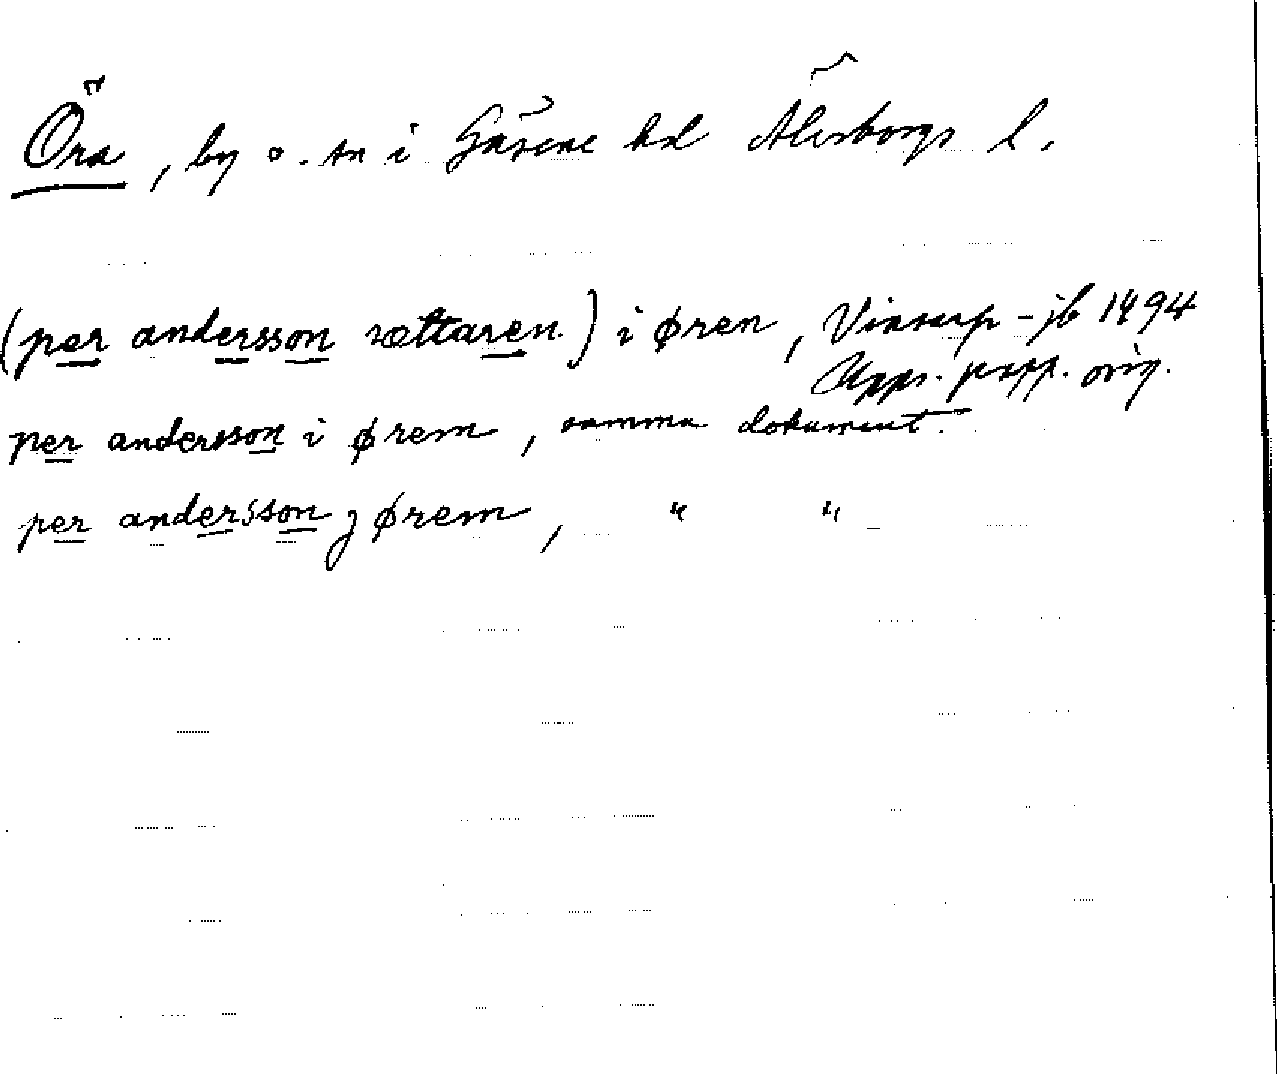 Öra, by o. sn i Gäsene hd Älvsborgs l.
(per andersson rættaren) i øren, Vinsarp-jb 1494
Upps. papp. orig.
per andersson i ørem, samma dokument.
per andersson j ørem, " "